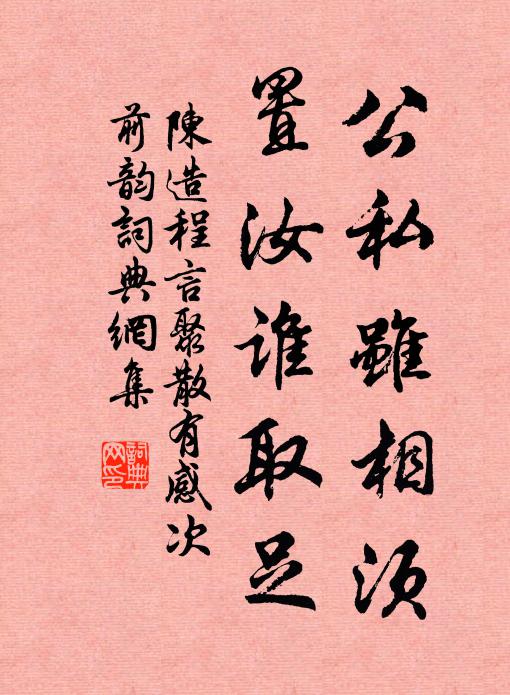 公私雖相須
置汝誰取足
陳造程言聚散有感次
前韵詞典網集
詞典網印